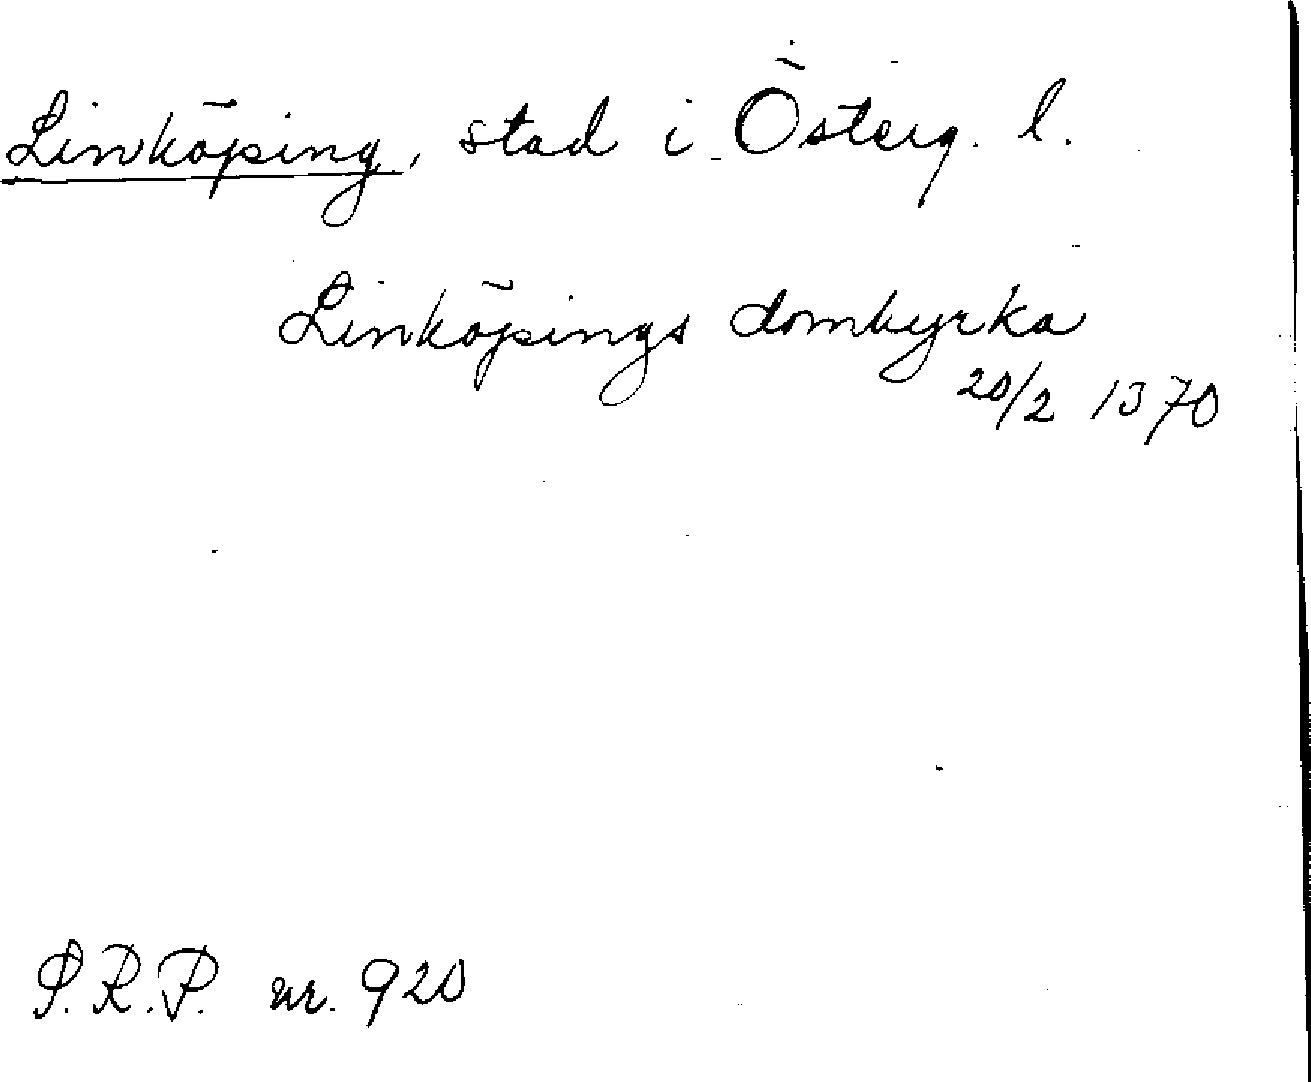 Linköping, stad i Österg. l.
Linköpings domkyrka
20/2 1370
S.R.P. nr. 920